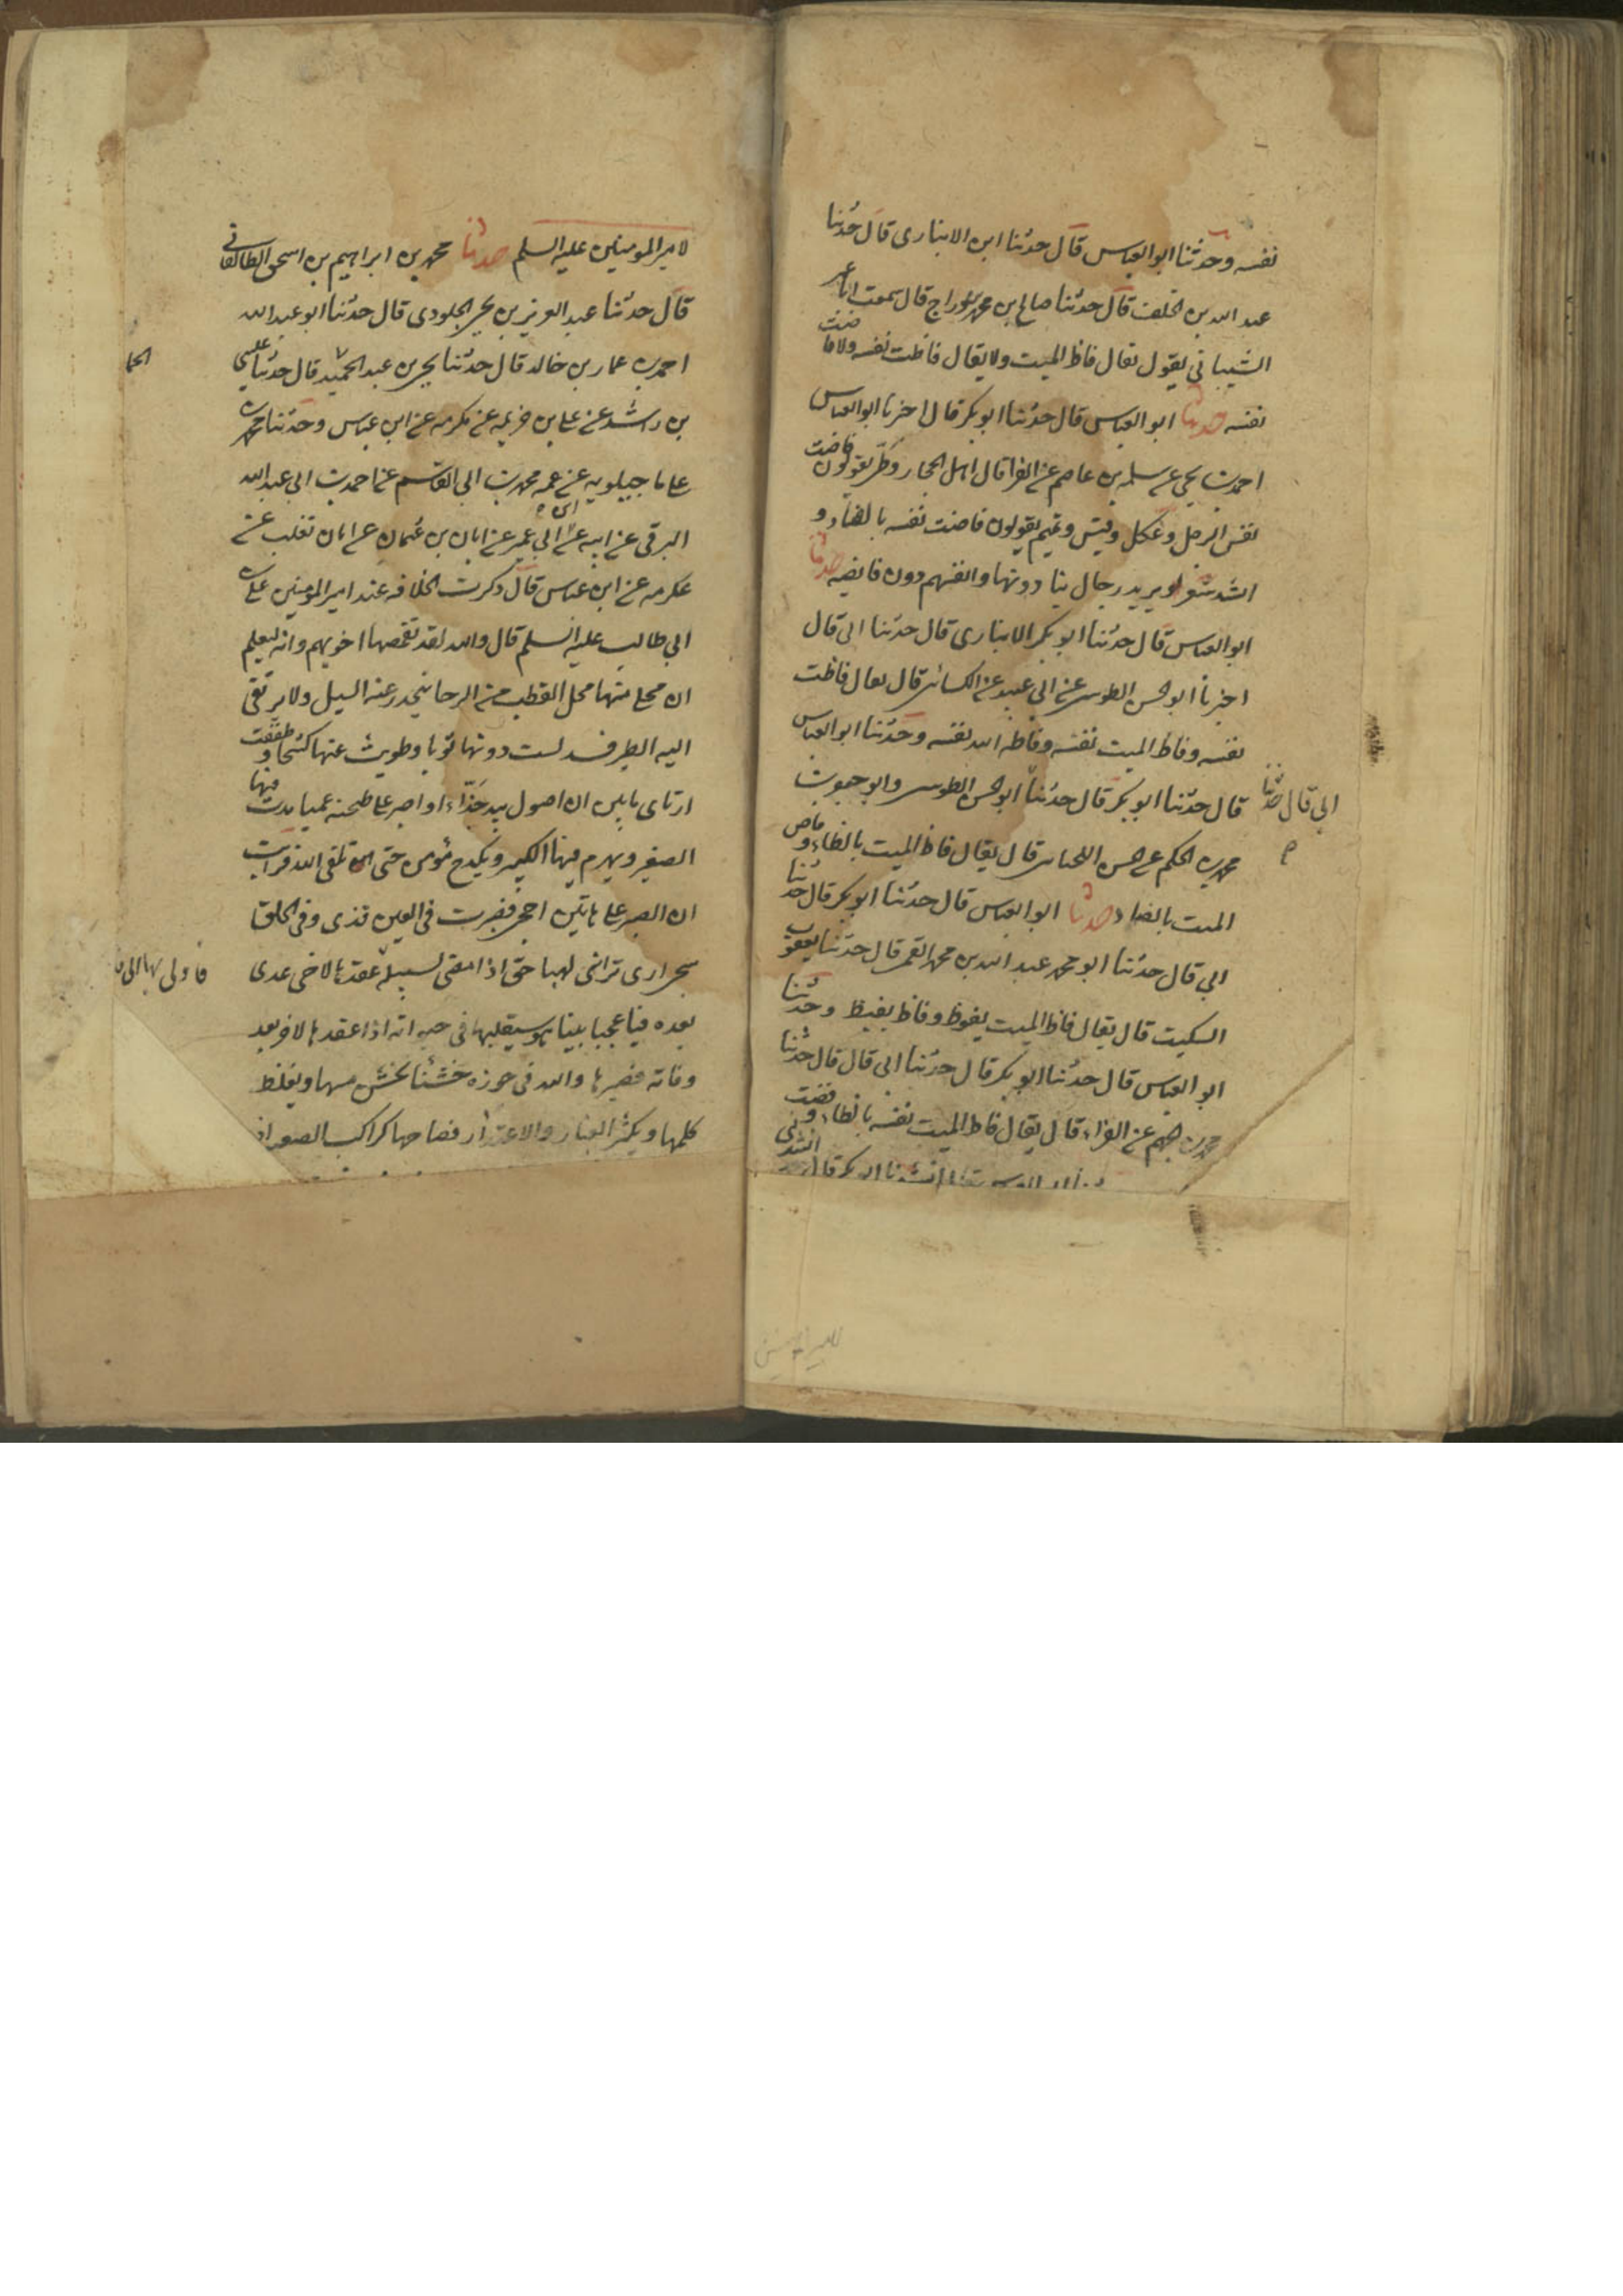 نفسه وحدثنا ابو العباس قال حدثنا ابن الانبارى قال حدثنا
عبد الله بن الخلف قال حدثنا صالح بن محمد بن دراج قال سمعت ابا عمر
الشيبانى يقول يقال فاظ الميت ولا يقال فاظت نفسه ولا فاضت
نفسه حدثنا ابو العباس قال حدثنا ابو بكر قال اخبرنا ابو العباس
احمد بن يحيى عن سلمه بن عاصم عن الفرا قال اهل الحجاز وطى يقولون فاضت
نفس الرجل وعكل وقيس وتميم يقولون فاضت نفسه بالضاد و
انشد شعر يريد رجال ينادونها وانفسهم دون فايضه حدثنا
ابو العباس قال حدثنا ابو بكر الانبارى قال حدثنا ابى قال
اخبرنا ابو الحسن الطوسى عن ابى عبيد عن الكسائى قال يقال فاظت
نفسه وفاظ الميت نفسه وفاظه الله نفسه وحدثنا ابو العباس
قال حدثنا ابو بكر قال حدثنا ابو الحسن الطوسى وابو جعفر
ابى قال حدثنا
محمد بن الحكم عن الحسن اللحيانى قال يقال فاظ الميت بالظاء وفاض
الميت بالضاد حدثنا ابو العباس قال حدثنا ابو بكر قال حدثنا
ابى قال حدثنا ابو محمد عبد الله بن محمد القمى قال حدثنا يعقوب
السكيت قال يقال فاظ الميت يفوظ وفاظ يفيظ وحدثنا
ابو العباس قال حدثنا ابو بكر قال حدثنا ابى قال قال حدثنا
محمد بن جهم عن الفراء قال يقال فاظ الميت نفسه بالظاء و
لامير المومنين عليه السلم حدثنا محمد بن ابراهيم بن اسحق الطالقانى
قال حدثنا عبد العزيز بن يحيى الجلودى قال حدثنا ابو عبد الله
احمد بن عمار بن خالد قال حدثنا يحيى بن عبد الحميد قال حدثنا عيسى
الحما
بن راشد عن على بن خزيمه عن عكرمه عن ابن عباس وحدثنا محمد بن
على ماجيلويه عن عمه محمد بن ابى القسم عن احمد بن ابى عبد الله
البرقى عن ابيه عن ابن ابى عمير عن ابان بن عثمان عن ابان تغلب عن
عكرمه عن ابن عباس قال ذكرت الخلافه عند امير المومنين على بن
ابى طالب عليه السلم قال والله لقد تقمصها اخو تيم وانه ليعلم
ان محلى منها محل القطب من الرحا ينحدر عنه السيل ولا يرتقى
اليه الطرف سدلت دونها ثوبا وطويت عنها كشحا وطفقت
ارتاى بين ان اصول بيد جذاء او اصبر على طخيه عميا يدب فيها
الصغير ويهرم فيها الكبير ويكدح مؤمن حتى تلقى الله فرايت
ان الصبر على هاتين احجى فصبرت فى العين قذى وفى الحلق
شجى ارى تراثى نهبا حتى اذا مضى لسبيله عقدها لاخى عدى
فادلى بها الى
بعده فيا عجبا بينا هو يستقيلها فى حيوته اذا عقدها لاخر بعد
وفاته فصيرها والله فى حوزه خشنا يخشن مسها ويغلظ
كلمها ويكثر العثار والاعتذار فصاحبها كراكب الصعبه